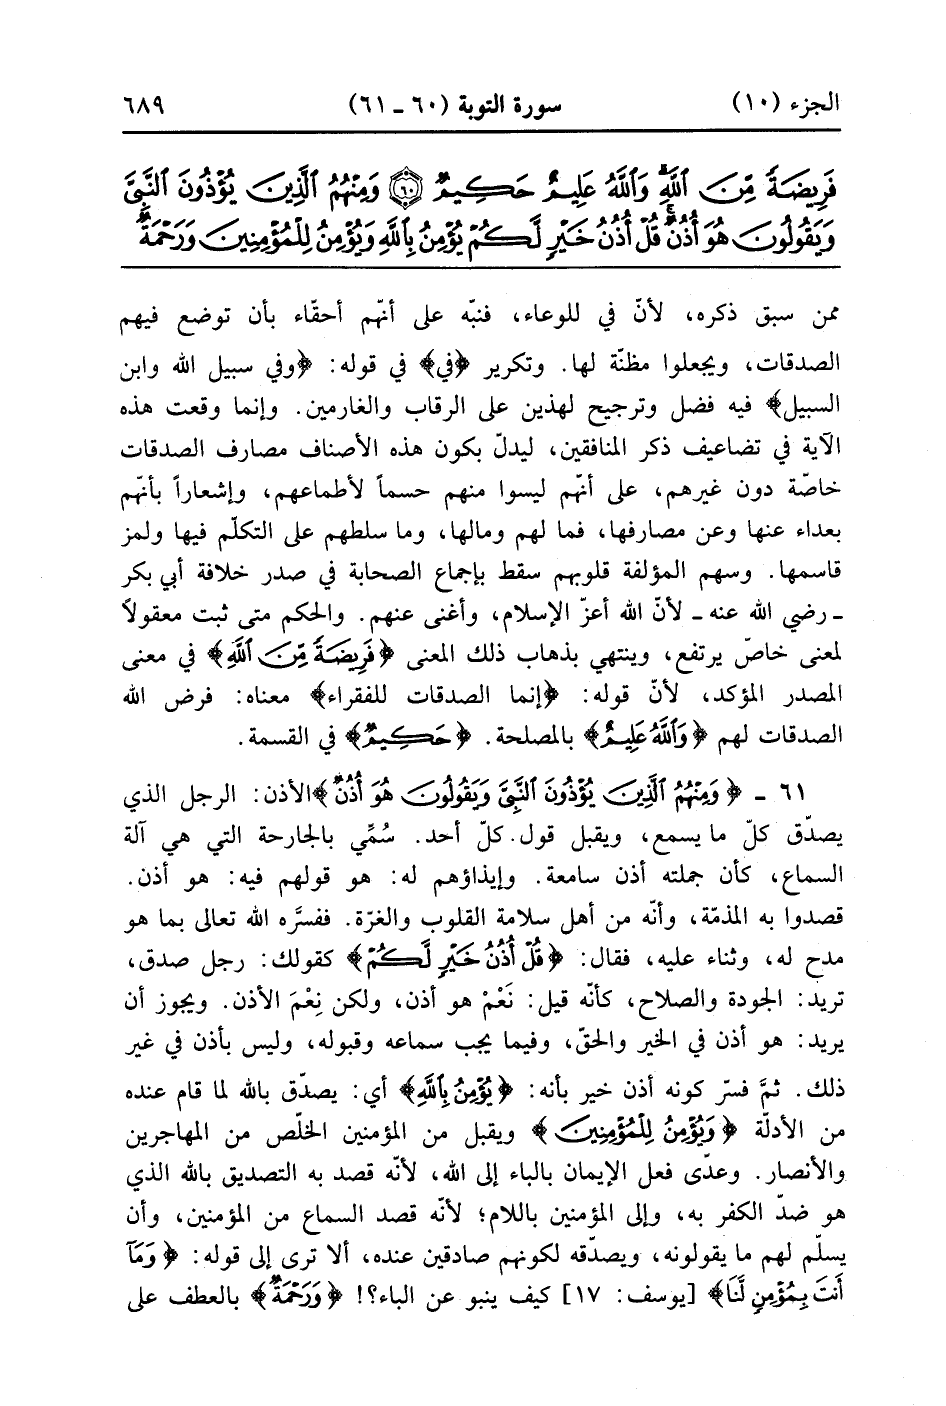 الجزء (١٠) سورة التوبة (٦٠ ـ ٦١) ٦٨٩
فَرِيضَةً مِّنَ ٱللَّهِ وَٱللَّهُ عَلِيمٌ حَكِيمٌ ٦٠ وَمِنْهُمُ ٱلَّذِينَ يُؤْذُونَ ٱلنَّبِىَّ
وَيَقُولُونَ هُوَ أُذُنٌ قُلْ أُذُنُ خَيْرٍ لَّكُمْ يُؤْمِنُ بِٱللَّهِ وَيُؤْمِنُ لِلْمُؤْمِنِينَ وَرَحْمَةٌ
ممن سبق ذكره، لأنّ في للوعاء، فنبّه على أنّهم أحقّاء بأن توضع فيهم
الصدقات، ويجعلوا مظنّة لها. وتكرير ﴿في﴾ في قوله: ﴿وفي سبيل الله وابن
السبيل﴾ فيه فضل وترجيح لهذين على الرقاب والغارمين. وإنما وقعت هذه
الآية في تضاعيف ذكر المنافقين، ليدلّ بكون هذه الأصناف مصارف الصدقات
خاصّة دون غيرهم، على أنّهم ليسوا منهم حسماً لأطماعهم، وإشعاراً بأنّهم
بعداء عنها وعن مصارفها، فما لهم ومالها، وما سلطهم على التكلّم فيها ولمز
قاسمها. وسهم المؤلفة قلوبهم سقط بإجماع الصحابة في صدر خلافة أبي بكر
ـ رضي الله عنه ـ لأنّ الله أعزّ الإسلام، وأغنى عنهم. والحكم متى ثبت معقولاً
لمعنى خاصّ يرتفع، وينتهي بذهاب ذلك المعنى ﴿فَرِيضَةً مِّنَ ٱللَّهِ﴾ في معنى
المصدر المؤكد، لأنّ قوله: ﴿إنما الصدقات للفقراء﴾ معناه: فرض الله
الصدقات لهم ﴿وَٱللَّهُ عَلِيمٌ﴾ بالمصلحة. ﴿حَكِيمٌ﴾ في القسمة.
٦١ ـ ﴿وَمِنْهُمُ ٱلَّذِينَ يُؤْذُونَ ٱلنَّبِىَّ وَيَقُولُونَ هُوَ أُذُنٌ﴾الأذن: الرجل الذي
يصدّق كلّ ما يسمع، ويقبل قول كلّ أحد. سُمِّي بالجارحة التي هي آلة
السماع، كأن جملته أذن سامعة. وإيذاؤهم له: هو قولهم فيه: هو أذن.
قصدوا به المذمّة، وأنّه من أهل سلامة القلوب والغرّة. ففسَّره الله تعالى بما هو
مدح له، وثناء عليه، فقال: ﴿قُلْ أُذُنُ خَيْرٍ لَّكُمْ﴾ كقولك: رجل صدق،
تريد: الجودة والصلاح، كأنّه قيل: نَعَمْ هو أذن، ولكن نِعْمَ الأذن. ويجوز أن
يريد: هو أذن في الخير والحقّ، وفيما يجب سماعه وقبوله، وليس بأذن في غير
ذلك. ثمَّ فسرّ كونه أذن خير بأنه: ﴿يُؤْمِنُ بِٱللَّهِ﴾ أي: يصدّق بالله لما قام عنده
من الأدلّة ﴿وَيُؤْمِنُ لِلْمُؤْمِنِينَ﴾ ويقبل من المؤمنين الخلّص من المهاجرين
والأنصار. وعدّى فعل الإيمان بالباء إلى الله، لأنّه قصد به التصديق بالله الذي
هو ضدّ الكفر به، وإلى المؤمنين باللام؛ لأنّه قصد السماع من المؤمنين، وأن
يسلّم لهم ما يقولونه، ويصدّقه لكونهم صادقين عنده، ألا ترى إلى قوله: ﴿وَمَآ
أَنتَ بِمُؤْمِنٍ لَّنَا﴾ [يوسف: ١٧] كيف ينبو عن الباء؟! ﴿وَرَحْمَةٌ﴾ بالعطف على